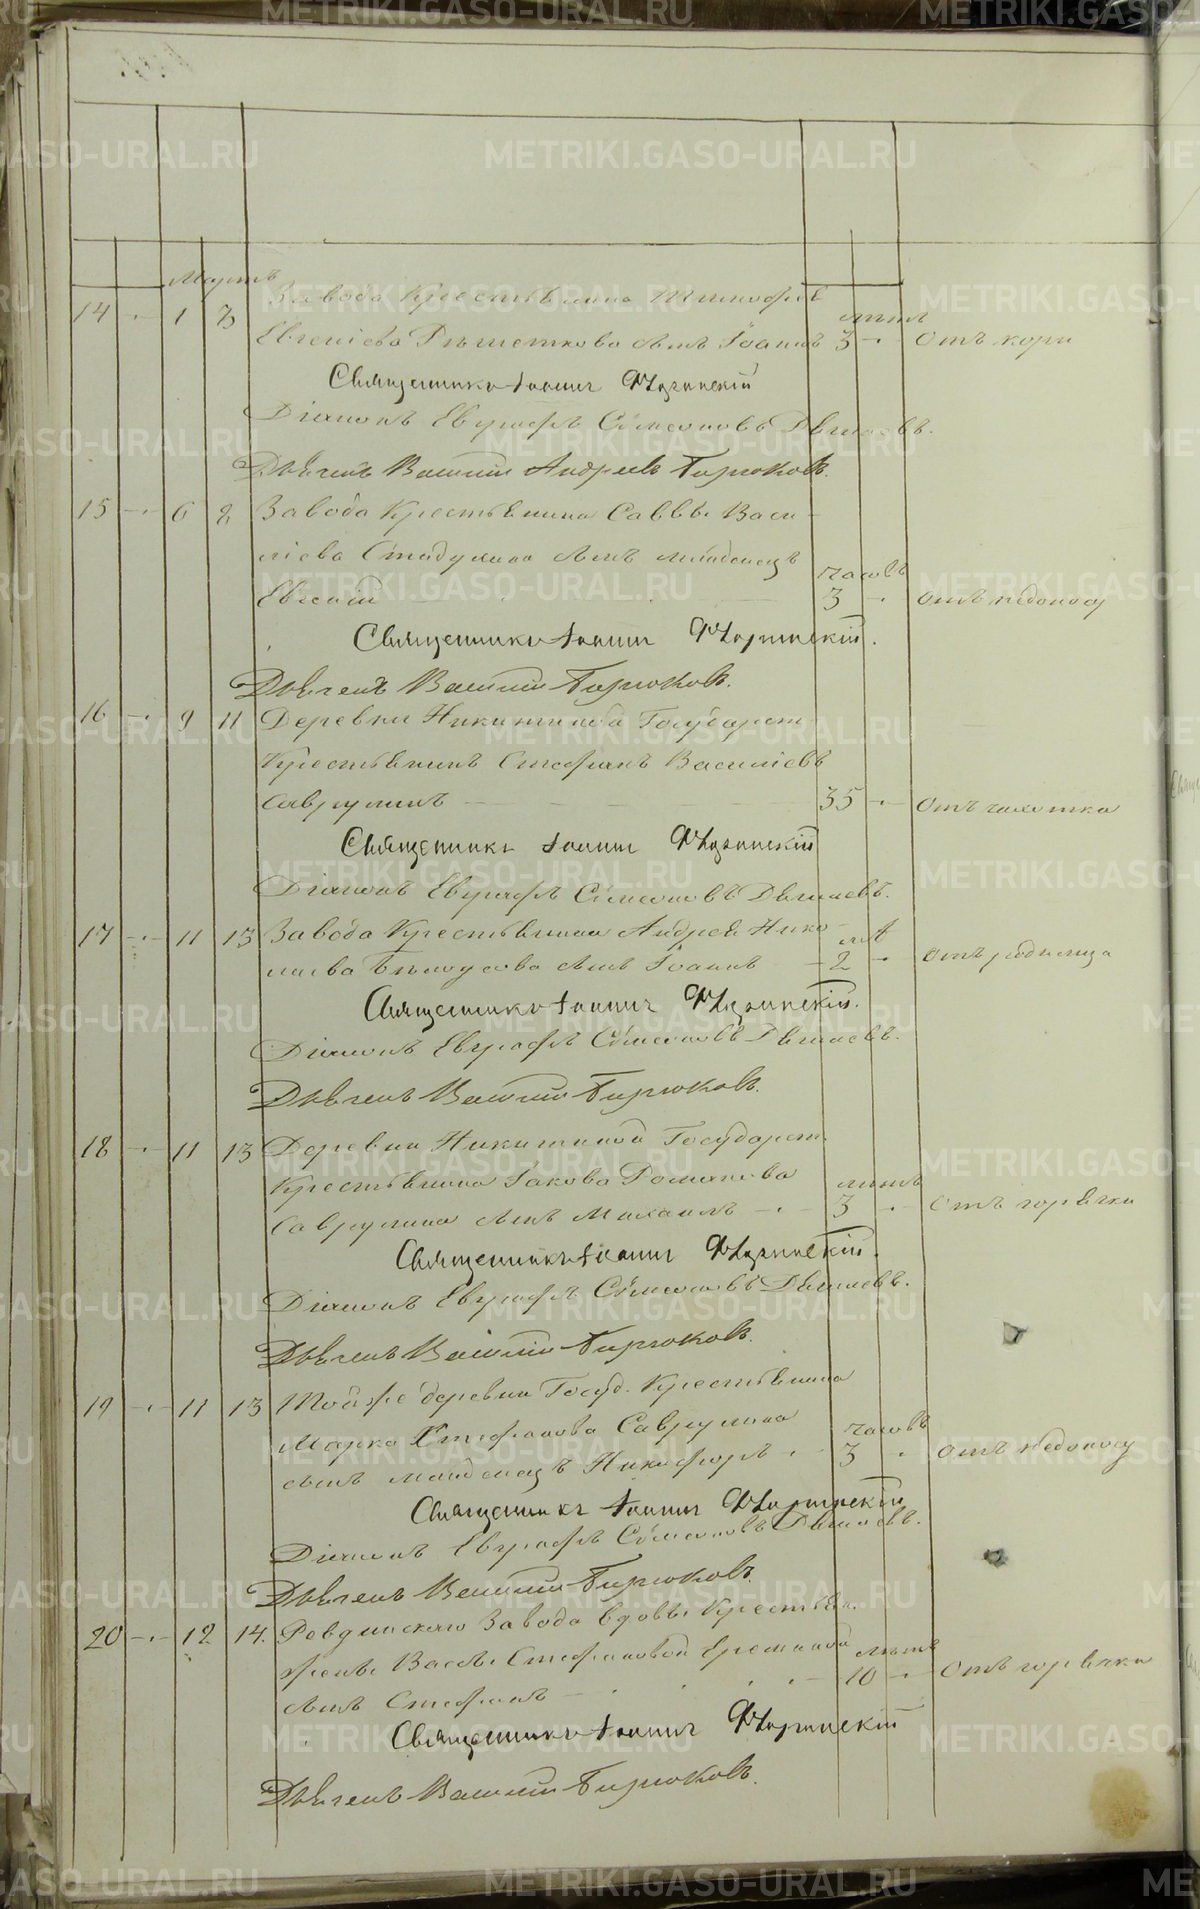 Мартъ
14 1 3 Завода Крестьянина Тимофея
Евгеніева Рѣшеткова сынъ Іоаннъ лѣтъ 3 Отъ кори
Священникъ Іоаннъ
Діаконъ Евграфъ Симеоновъ
Дьячекъ Василій Андреевъ Бирюковъ.
15 6 8 Завода Крестьянина Саввы Васи-
ліева Стадухина сынъ младенецъ
Евгеній часовъ 3 отъ недоносу
Священникъ Іоаннъ
Дьячекъ Василій Бирюковъ.
16 9 11 Деревни Никитиной Государст
Крестьянинъ Стефанъ Василіевъ
Саврулинъ 35 Отъ чахотки
Священникъ Іоаннъ
Діаконъ Евграфъ Симеоновъ
17 11 13 Завода Крестьянина Андрея Нико-
лаева Бѣлоусова сынъ Іоаннъ лѣт 2 Отъ родимца
Священникъ Іоаннъ
Діаконъ Евграфъ Симеоновъ
Дьячекъ Василій Бирюковъ.
18 11 13 Деревни Никитиной Государст.
Крестьянина Іакова Романова
Саврулина сынъ Михаилъ лѣтъ 3 Отъ горячки
Священникъ Іоаннъ
Діаконъ Евграфъ Симеоновъ
Дьячекъ Василій Бирюковъ.
19 11 13 Той же деревни Госуд. Крестьянина
Марка Стефанова Саврулина
сынъ младенецъ Никифоръ часовъ 3 Отъ недоносу
Священникъ Іоаннъ
Діаконъ Евграфъ Симеоновъ
Дьячекъ Василій Бирюковъ.
20 12 14. Ревдинскаго Завода вдовы Крестьян.
жены Вассы Стефановой Ереминой
сынъ Стефанъ лѣтъ 10 Отъ горячки
Священникъ Іоаннъ
Дьячекъ Василій Бирюковъ.
METRIKI.GASO-URAL.RU